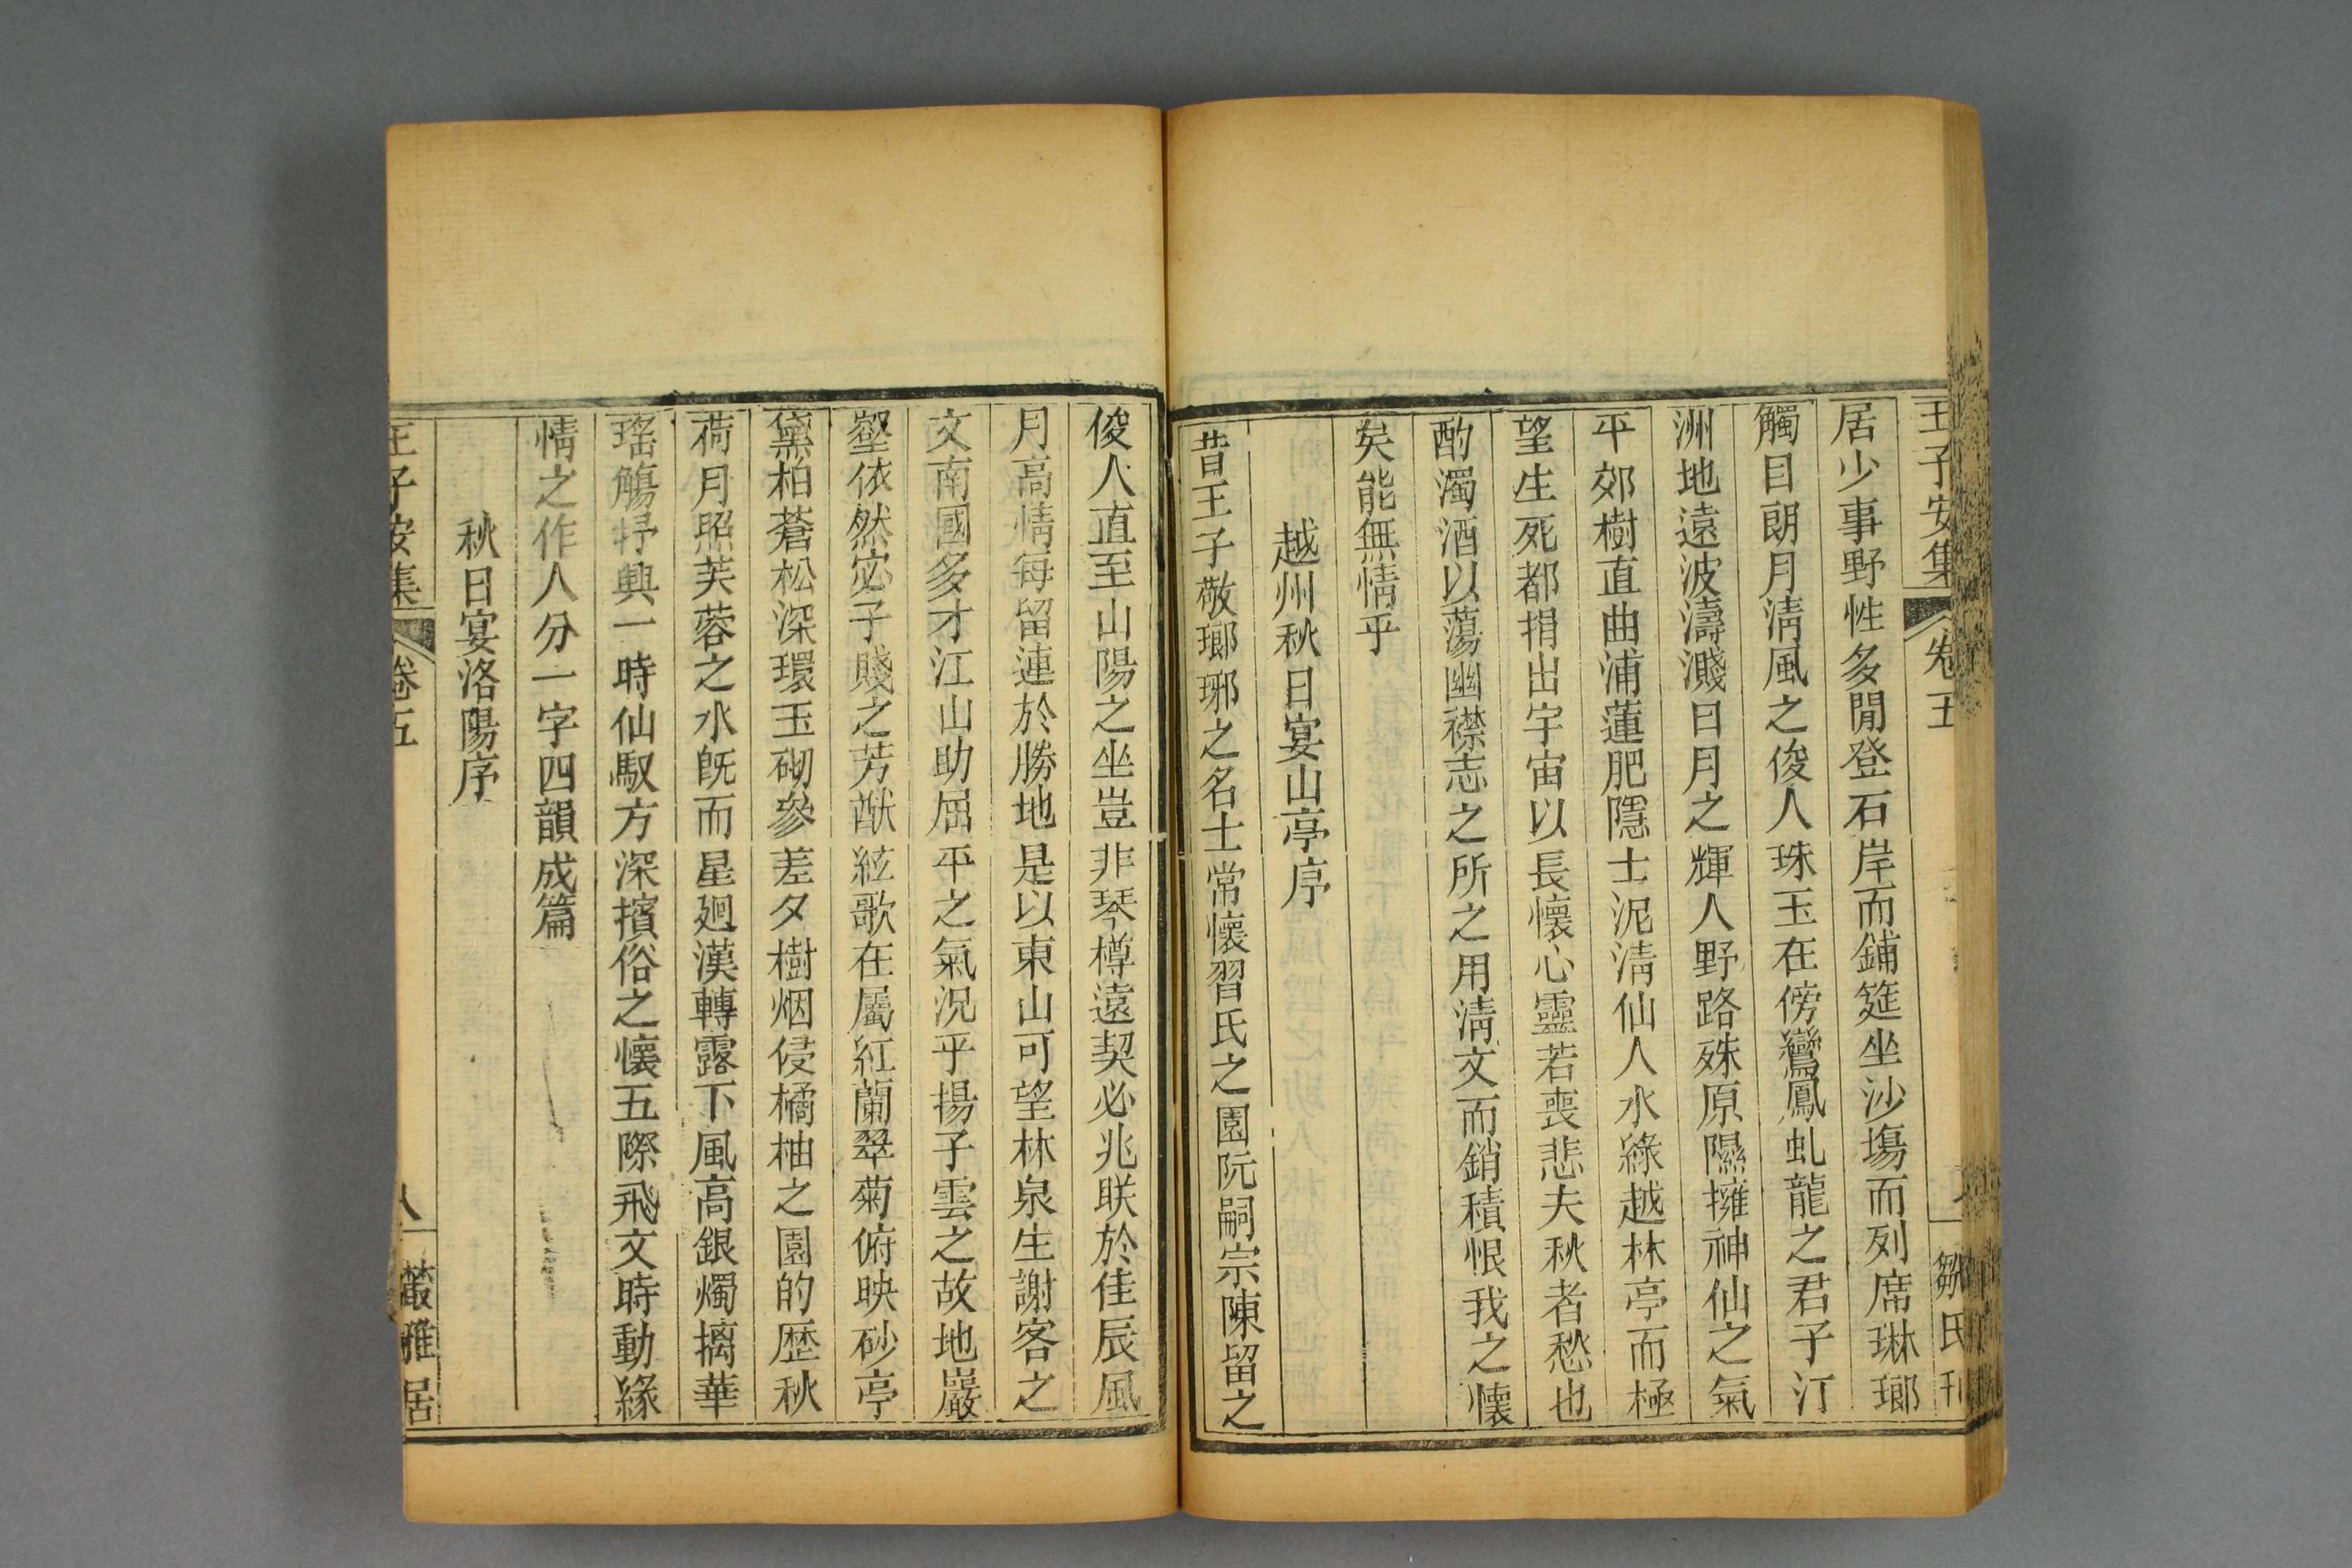 王子安集 卷五 鄒氏刊
居少事野性多閒登石岸而鋪筵坐沙場而列席琳瑯
觸目朗月淸風之俊人珠玉在傍鸞鳳虬龍之君子汀
洲地遠波濤濺日月之輝人野路殊原隰擁神仙之氣
平郊樹直曲浦蓮肥隱士泥淸仙人水綠越林亭而極
望生死都捐出宇宙以長懷心靈若喪悲夫秋者愁也
酌濁酒以蕩幽襟志之所之用淸文而銷積恨我之懷
矣能無情乎
越州秋日宴山亭序
昔王子敬瑯琊之名士常懷習氏之園阮嗣宗陳留之
俊人直至山陽之坐豈非琴樽遠契必兆联於佳辰風
月高情每留連於勝地是以東山可望林泉生謝客之
文南國多才江山助屈平之氣況乎揚子雲之故地巖
壑依然宓子賤之芳猷絃歌在屬紅蘭翠菊俯映砂亭
黛柏蒼松深環玉砌參差夕樹烟侵橘柚之園的歴秋
荷月照芙蓉之水旣而星廻漢轉露下風高銀燭摛華
瑤觴抒興一時仙馭方深擯俗之懷五際飛文時動緣
情之作人分一字四韻成篇
秋日宴洛陽序
王子安集 卷五 八 叢雅居